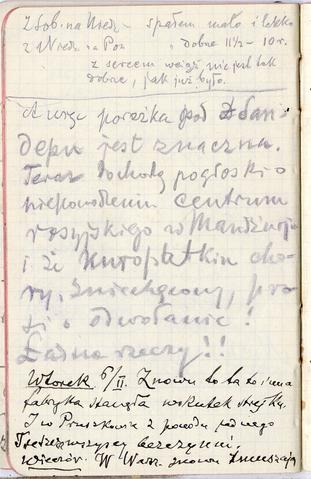 z Sob. na Niedz - spałem mało i lekko
z Niedz. na Pon " dobrze 11½ - 10 r.
z sercem wciąż nie jest tak
dobrze, jak już było.
A więc porażka pod
depu jest znaczna.
Teraz dochodzą pogłoski o
niepowodzeniu centrum
rosyjskiego w Mandżurji
i że Kuropatkin cho-
ry, zniechęcony, pro-
si o odwołanie!
Ładne rzeczy!!
Wtorek 6/II. Znowu ta i inna
fabryka stanęła wskutek strejku.
I w Pruszkowie z powodu
bezczynni.
Wieczór. W Warsz. znowu zmuszają